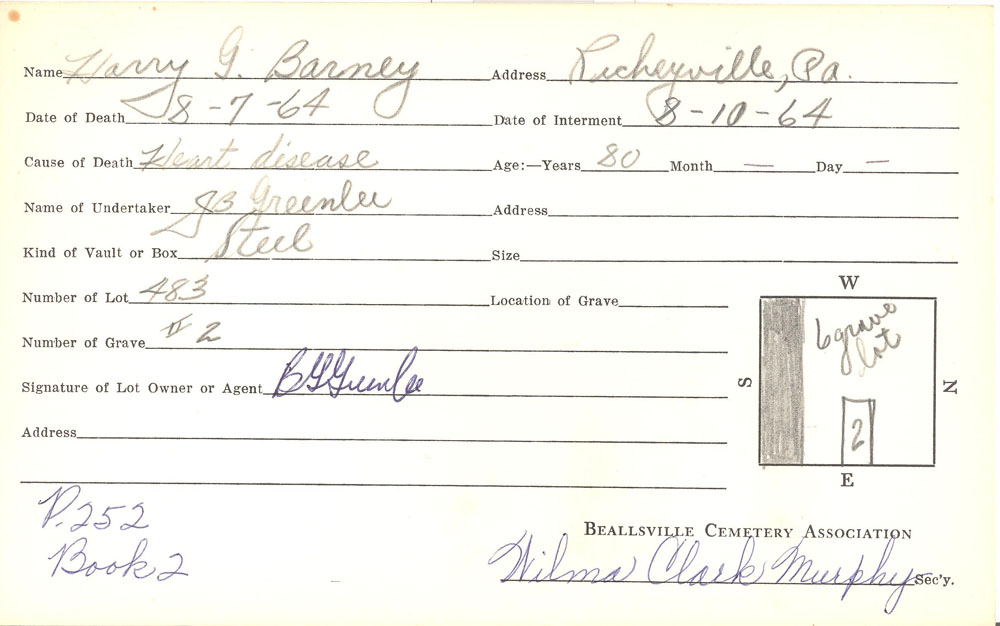 Name Harry G. Barney Address Richeyville, Pa.
Date of Death 8-7-64 Date of Interment 8-10-64
Cause of Death Heart disease Age:—Years 80 Month — Day —
Name of Undertaker JB Greenlee Address
Kind of Vault or Box Steel Size
Number of Lot 483 Location of Grave
Number of Grave # 2
Signature of Lot Owner or Agent BGGreenlee
Address
W
6 grave
lot
S
N
2
E
P. 252
Book 2
BEALLSVILLE CEMETERY ASSOCIATION
Wilma Clark Murphy Sec'y.